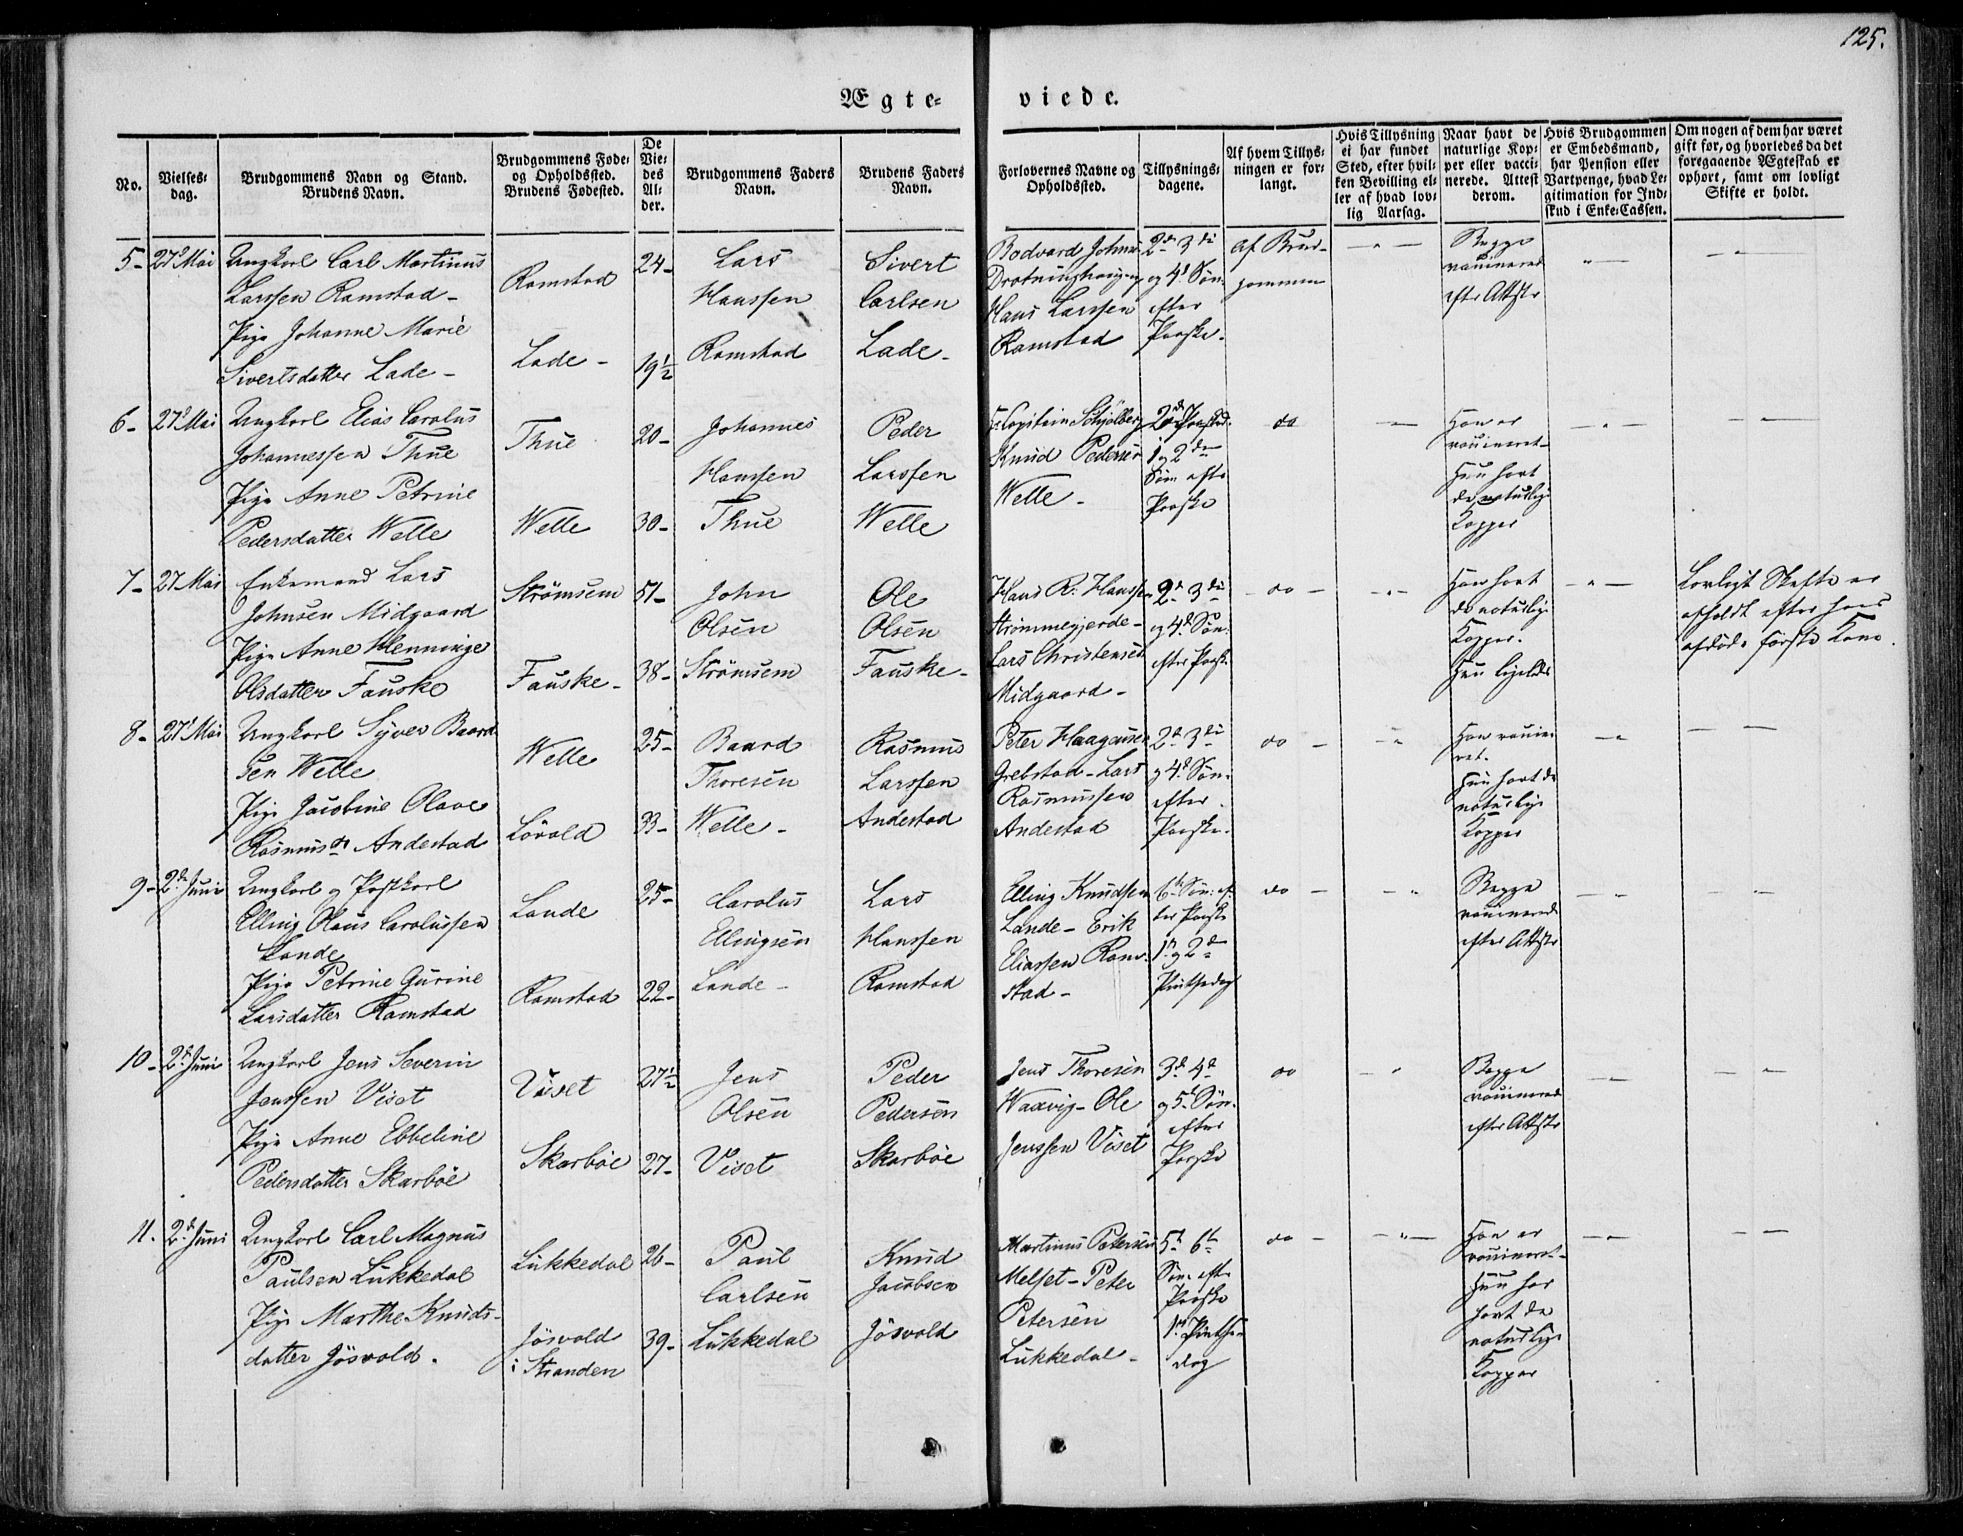 125.
Ægte- viede.
No.
Vielses-
dag.
Brudgommens Navn og Stand.
Brudens Navn.
Brudgommens Føde-
og Opholdssted.
Brudens Fødested.
De
Vie-
des
Al-
der.
Brudgommens Faders
Navn.
Brudens Faders
Navn.
Forlovernes Navne og
Opholdssted.
Tillysnings-
dagene.
Af hvem Tillys-
ningen er for-
langt.
Hvis Tillysning
ei har fundet
Sted, efter hvil-
ken Bevilling el-
ler af hvad lov-
lig Aarsag.
Naar havt de
naturlige Kop-
per eller vacci-
nerede. Attest
derom.
Hvis Brudgommen
er Embedsmand,
har Pension eller
Vartpenge, hvad Le-
gitimation for Ind-
skud i Enke-Cassen.
Om nogen af dem har været
gift før, og hvorledes da det
foregaaende Ægteskab er
ophørt, samt om lovligt
Skifte er holdt.
5-
27d Mai
Ungkarl Carl Martinus
Larssen Ramstad-
Pige Johanne Marie
Sivertsdatter Lade-
Ramstad
Lade-
24-
19½
Lars
Hanssen
Ramstad
Sivert
Carlsen
Lade-
Bodvard Johns
Hans Larssen
Ramstad
2d 3die
og 4d Søn:
efter
Paaske-
Af Brud-
gommen
Begge
vaccinerede
efter Attester
6-
27d Mai
Ungkarl Elias Carolus
Johannessen Thue
Pige Anne Petrine
Pedersdatter Welle
Thue
Welle
20-
30-
Johannes
Hanssen
Thue
Peder
Larssen
Welle
Hr Capitain Schjølberg
Knud Pedersen
Welle-
2den Paaskd.
1 og 2den
Søn efter
Paaske
do
Han er
vaccineret-
Hun havt
de naturlige
Kopper
7-
27 Mai
Enkemand Lars
Johnsen Midgaard
Pige Anne Henninge
Olsdatter Fauske
Strømsem
Fauske-
51-
38-
John
Olsen
Strømsem
Ole
Olsen
Fauske-
Hans R. Hanssen
Strømmegjerde-
Lars Christensen
Midgaard-
2d 3die
og 4d Søn:
efter Paaske
do
Han havt
de naturlige
Kopper.
Hun ligeledes
Lovligt Skifte er
afholdt efter hans
afdøde første Kone.
8-
27d Mai
Ungkarl Syver Baard
sen Welle
Pige Jacobine Olave
Rasmusdr Andestad
Welle
Løvold
25-
33-
Baard
Thoresen
Welle-
Rasmus
Larssen
Andestad
Peter Haagensen
Grebstad-Lars
Rasmussen
Andestad
2d 3die
og 4d Søn:
efter
Paaske-
do
Han vaccine
ret.
Hun havt de
naturlige
Kopper
9-
2de Juni
Ungkarl og Postkarl
Elling Olaus Carolussen
Lande
Pige Petrine Gurine
Larsdatter Ramstad
Lande
Ramstad
25-
22-
Carolus
Ellingsen
Lande-
Lars
Hanssen
Ramstad
Elling Knudsen
Lande-Erik
Eliassen Ram-
stad-
6te Søn: ef-
ter Paaske
1ste og 2den
Pintsedag
do
Begge
vaccinerede
efter Attester
10-
2de Juni
Ungkarl Jens Severin
Jenssen Viset
Pige Anne Ebbeline
Pedersdatter Skarbøe
Viset
Skarbøe
27½
27-
Jens
Olsen
Viset
Peder
Pedersen
Skarbøe
Jens Thoresen
Waxvig-Ole
Jenssen Viset
3d 4d
og 5t Søn:
efter
Paaske
do
Begge
vaccinerede
efter Attester
11.
2de Juni
Ungkarl Carl Magnus
Paulsen Lukkedal
Pige Marthe Knuds-
datter Jøsvold.
Lukkedal
Jøsvold
i Stranden
26-
39-
Paul
Carlsen
Lukkedal
Knud
Jacobsen
Jøsvold
Martinus Petersen
Melset-Peter
Petersen
Lukkedal-
5te 6te
Søn: efter
Paaske
1ste Pintse-
dag
do
Han er
vaccineret-
Hun har
havt de
naturlige
Kopper